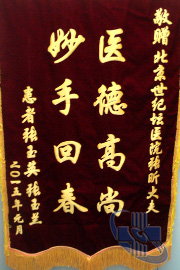 敬赠北京世纪坛医院张昕大夫
医德高尚
妙手回春
患者张玉英 张玉兰
二〇一五年元月